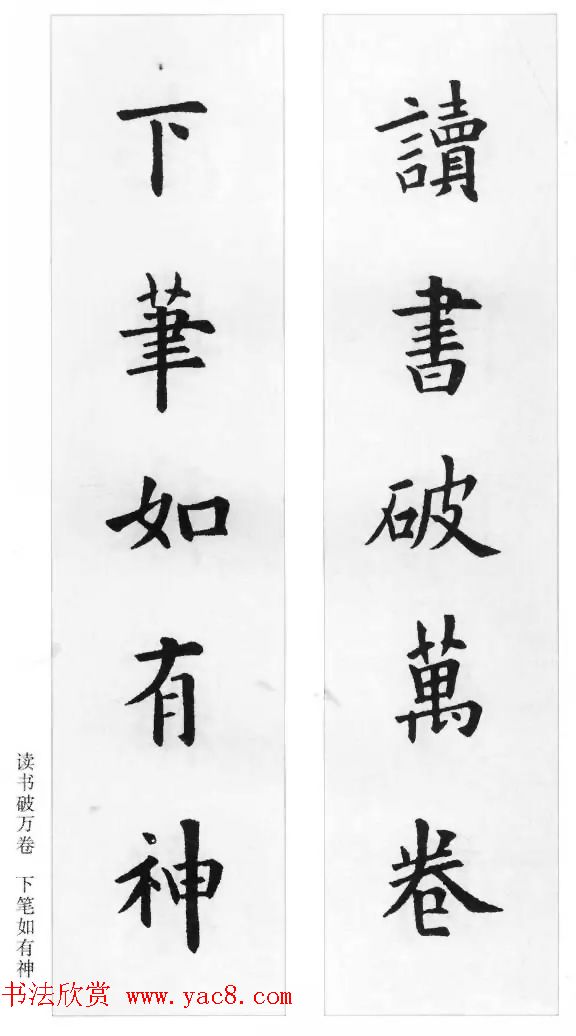 讀書破萬卷
下筆如有神
读书破万卷 下笔如有神
书法欣赏 www.yac8.com